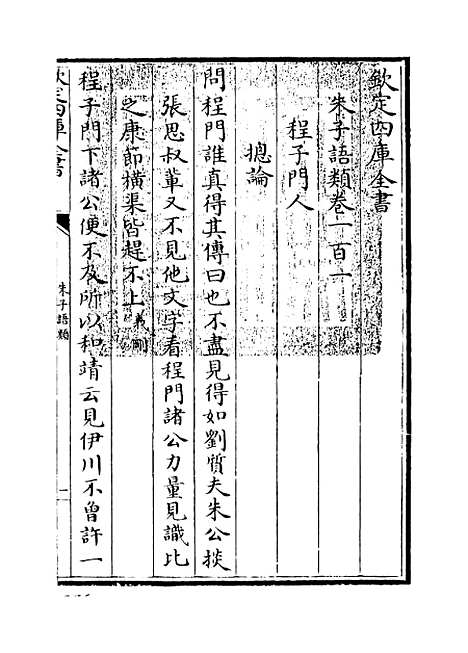 欽定四庫全書
朱子語類卷一百一
程子門人
摠論
問程門誰真得其傳曰也不盡見得如劉質夫朱公掞
張思叔輩又不見他文字看程門諸公力量見識比
之康節橫渠皆趕不上義剛
程子門下諸公便不及所以和靖云見伊川不曾許一
欽定四庫全書
朱子語類
一